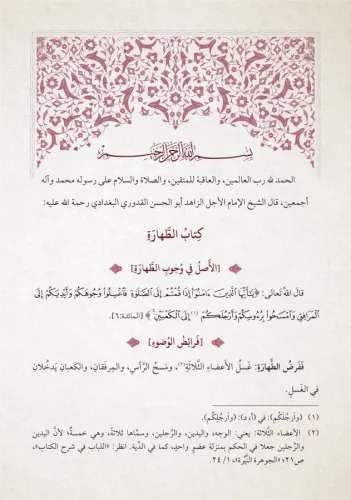 بِسْمِ اللَّهِ الرَّحْمَنِ الرَّحِيمِ
الحمد لله رب العالمين، والعاقبة للمتقين، والصلاة والسلام على رسوله محمد وآله
أجمعين، قال الشيخ الإمام الأجل الزاهد أبو الحسن القدوري البغدادي رحمة الله عليه:
كِتابُ الطَّهارَةِ
[الأَصلُ في وُجوبِ الطَّهارَةِ]
قال اللهُ تعالى: ﴿يَٰٓأَيُّهَا ٱلَّذِينَ ءَامَنُوٓا۟ إِذَا قُمْتُمْ إِلَى ٱلصَّلَوٰةِ فَٱغْسِلُوا۟ وُجُوهَكُمْ وَأَيْدِيَكُمْ إِلَى
ٱلْمَرَافِقِ وَٱمْسَحُوا۟ بِرُءُوسِكُمْ وَأَرْجُلَكُمْ (١) إِلَى ٱلْكَعْبَيْنِ﴾ [المائدة:٦].
[فَرائِضُ الوُضوءِ]
فَفَرضُ الطَّهارَةِ: غَسلُ الأَعضاءِ الثَّلاثَةِ(٢)، ومَسحُ الرَّأسِ، والمِرفَقانِ، والكَعبانِ يَدخُلانِ
في الغَسلِ.
(١) (وَأَرجُلَكُم): في (أ، ٥): (وأَرجُلِكُم).
(٢) الأعضاء الثَّلاثة: يعني: الوجه، واليدين، والرِّجلين، وسمَّاها ثلاثةً، وهي خمسةٌ؛ لأنَّ اليدين
والرِّجلين جعلا في الحكم بمنزلة عضوٍ واحدٍ، كما في الدِّية. انظر: «اللباب في شرح الكتاب»،
ص٢١؛ «الجوهرة النَّيِّرة»، ١/ ٢٤.